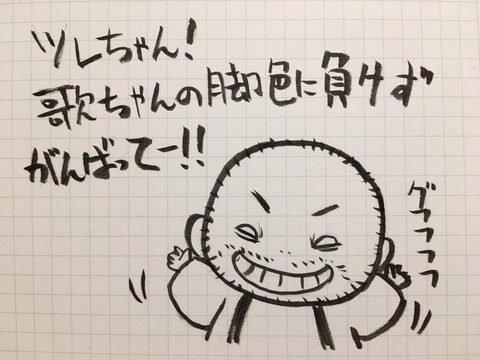 ツレちゃん!
歌ちゃんの脚色に負けず
がんばってー!!
グフフフフ